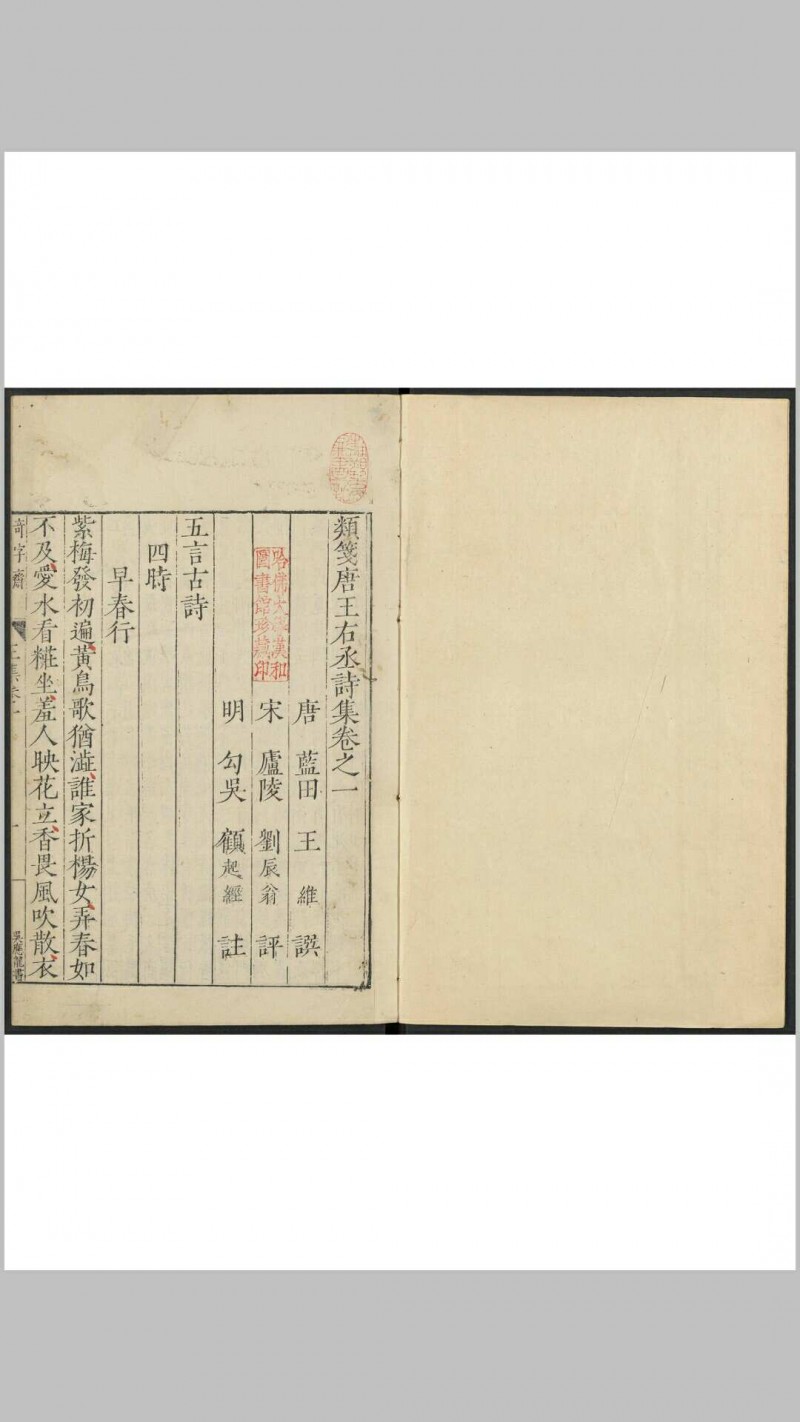 類箋唐王右丞詩集卷之一
唐 藍田 王維 譔
宋 廬陵 劉辰翁 評
明 勾吳 顧起經 註
五言古詩
四時
早春行
紫梅發初遍黃鳥歌猶澁誰家折楊女弄春如
不及愛水看糚坐羞人映花立香畏風吹散衣
奇字齋
王集卷一
一
吳應龍書
哈佛大學漢和
圖書館珍藏印